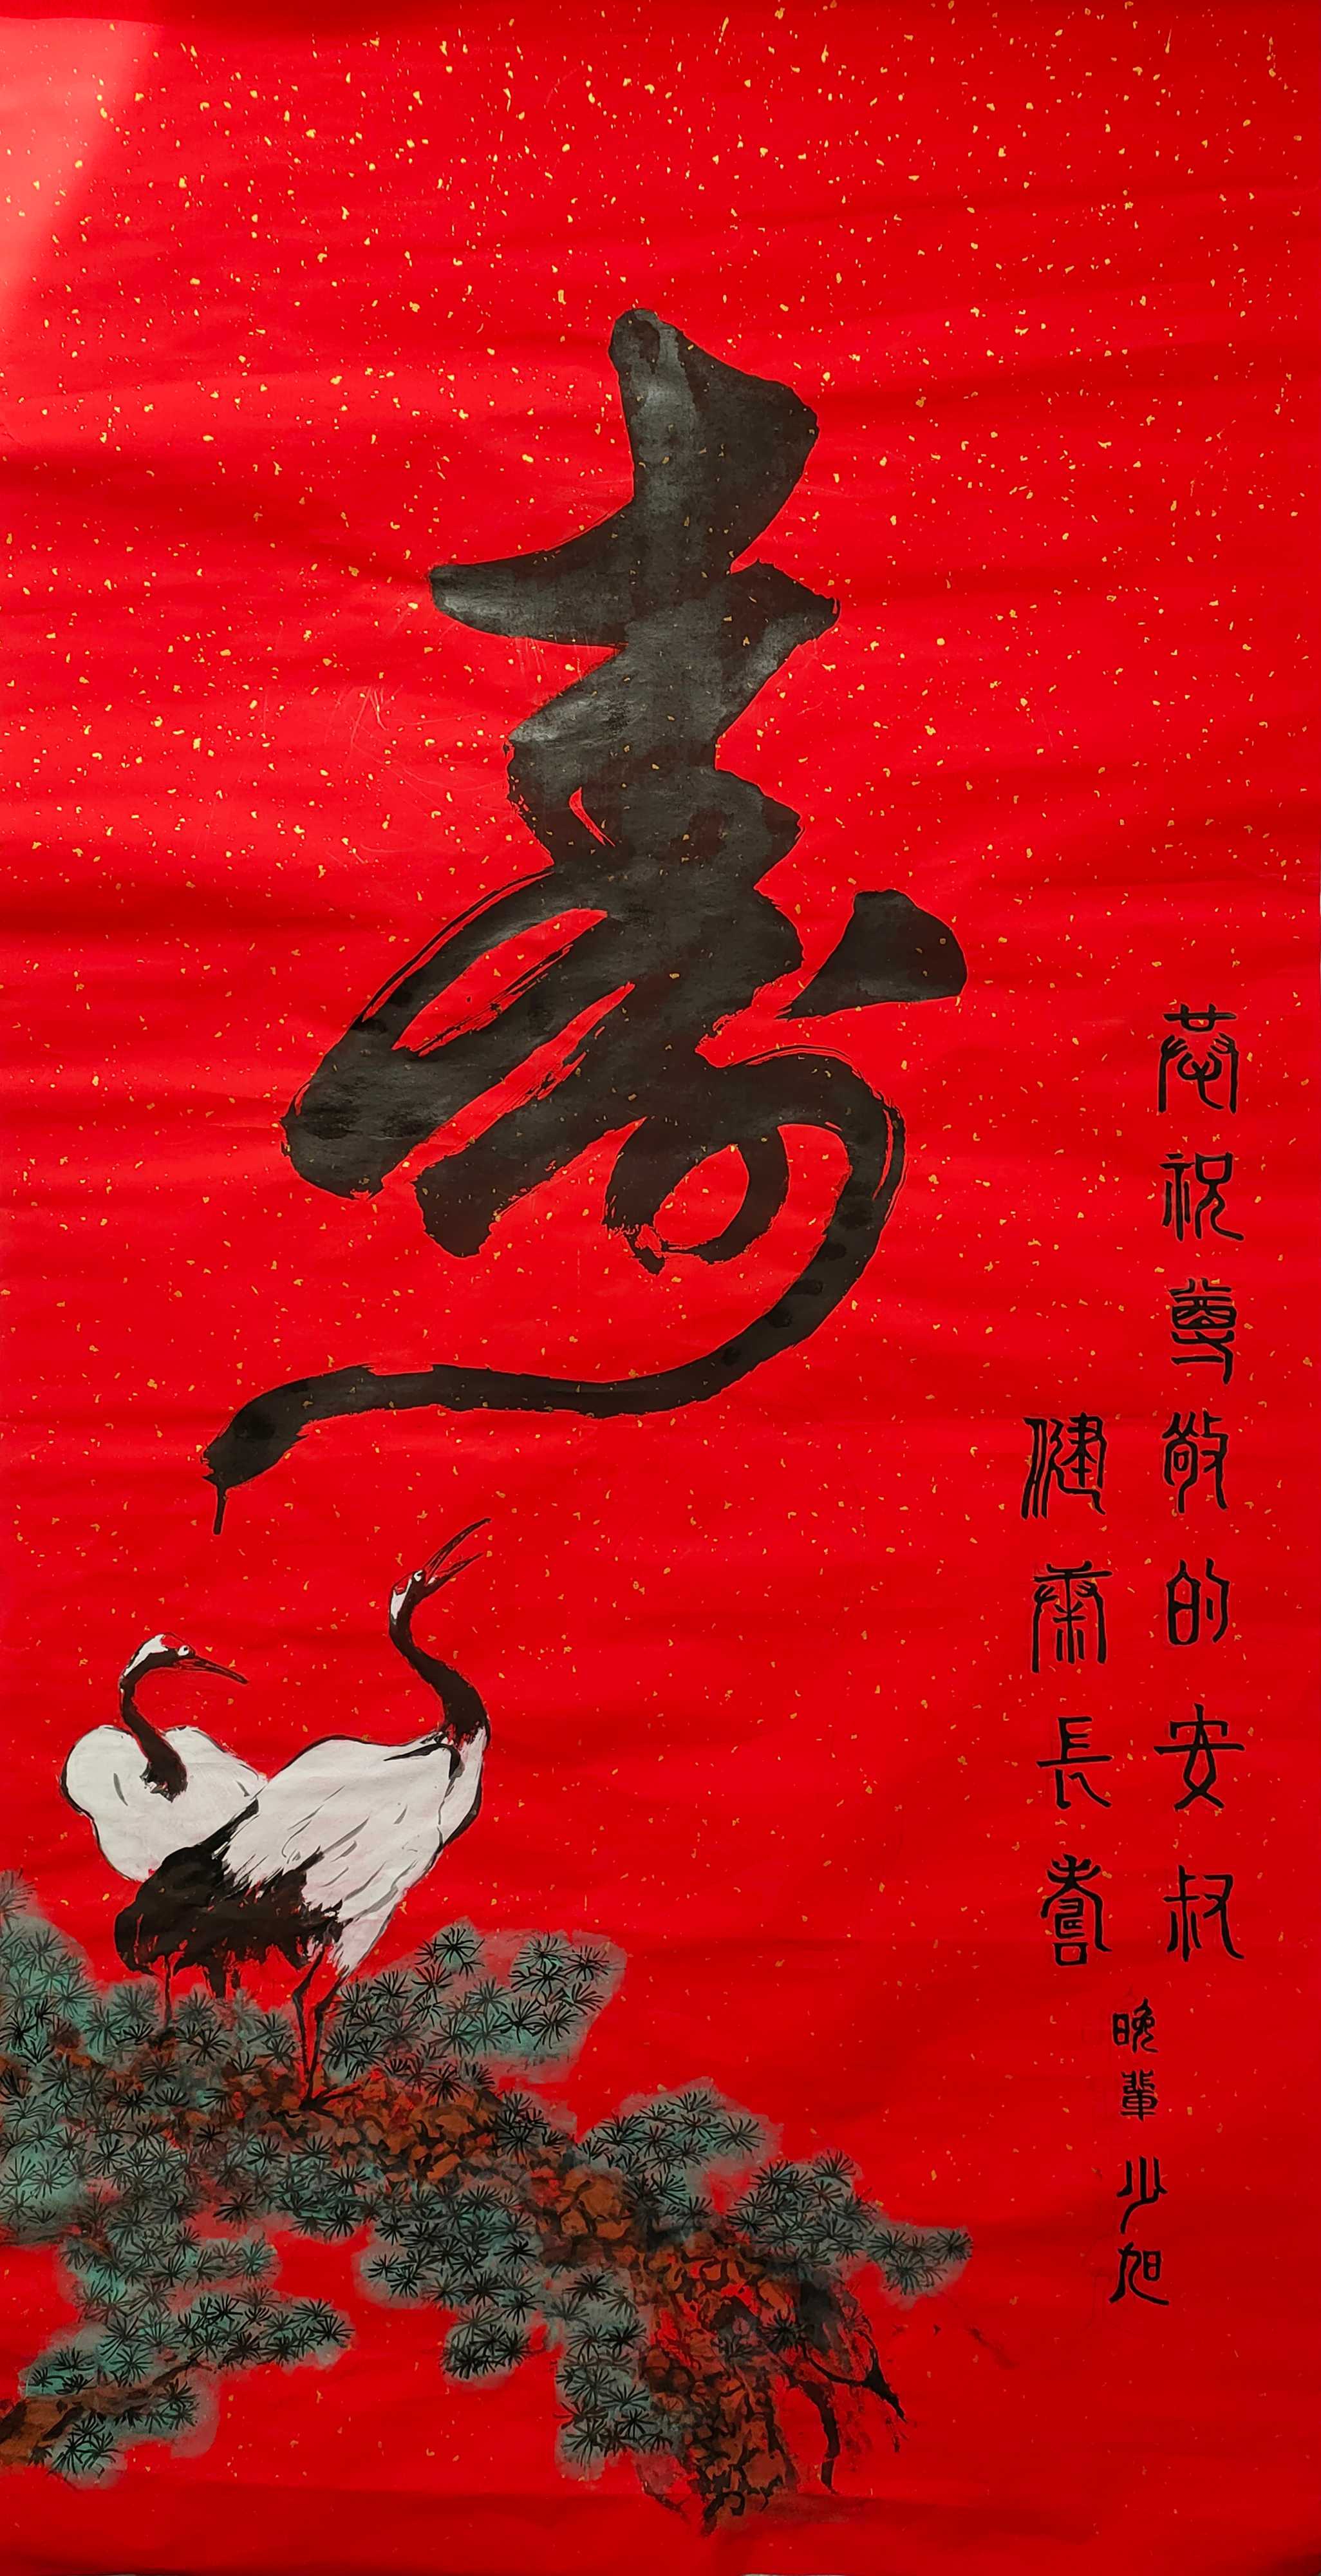 寿
恭祝尊敬的安叔
健康長壽
晚輩少旭